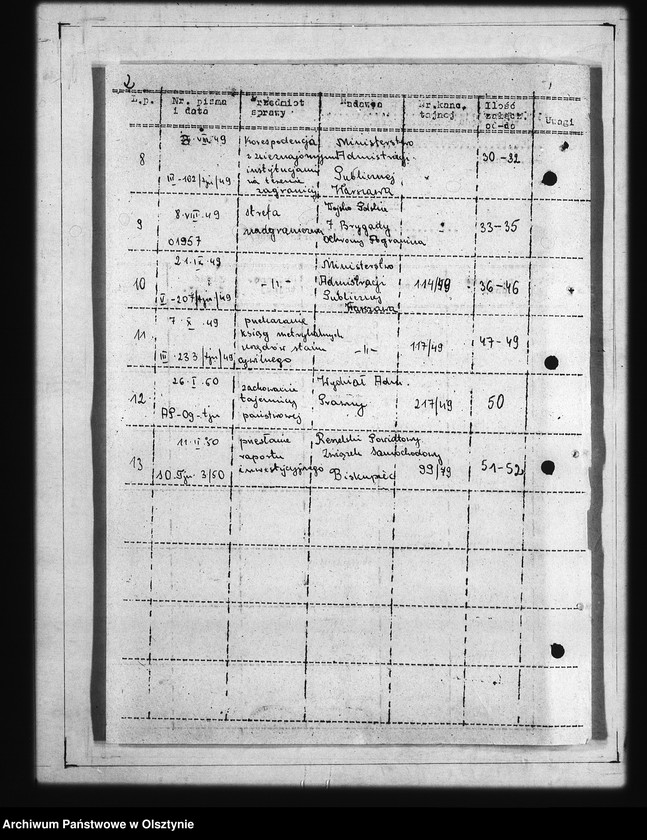 2
L.p. Nr. pisma i data Przedmiot sprawy Nadawca Nr.kanc. tajnej Ilość załącz. od-do Uwagi
8
VIII 49
III -102/tjn/49
Korespodencja
z zagranicy
instytucjami
na terenie
Ministerstwo
Admistracji
Publicznej
Warszawa
30-32
9
8.VIII.49
01957
strefa
nadgraniczna
Wojsko Polskie
7. Brygady
Ochrony Pogranicza
33-35
10
21.IX.49
V -207/tjn/49
-11-
Ministerstwo
Admistracji
Publicznej
Warszawa
114/49
36-46
11
7.X.49
III.233/tjn/49
ksiąg metrykalnych
urzędów stanu
cywilnego
-11-
117/49
47-49
12
26.I.50
AP-Og-tjn
zachowanie
tajemnicy
państwowej
Wydział Adm.
Prawny
217/49
50
13
11.II.50
10.Tjn.3/50
przesłanie
raportu
inwestycyjnego
Powiatowy
Związek Samochodowy
Biskupiec
99/49
51-52
Archiwum Państwowe w Olsztynie